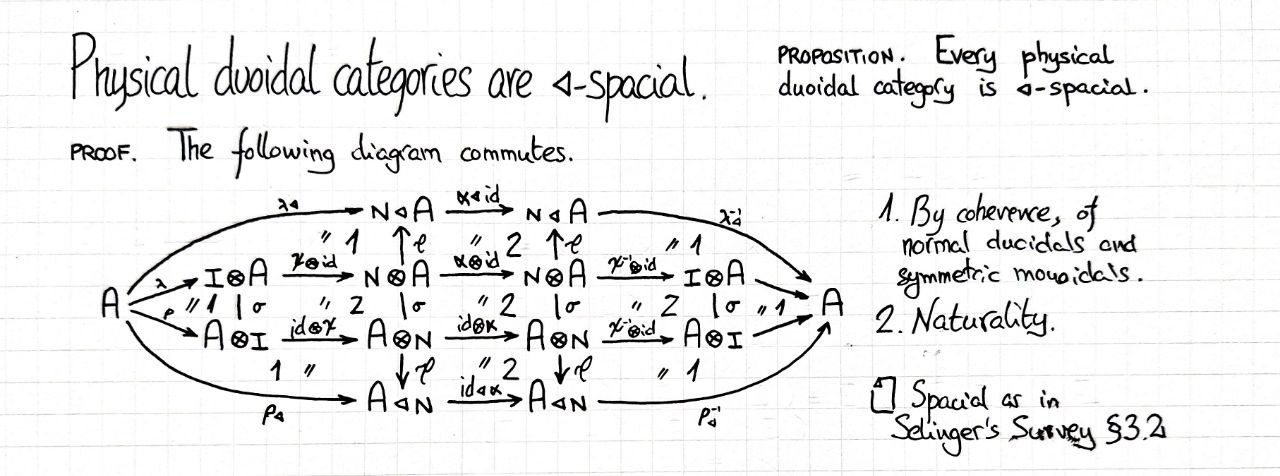 Physical duoidal categories are ◁-spacial.
PROPOSITION. Every physical
duoidal category is ◁-spacial.
PROOF. The following diagram commutes.
λ◁ N◁A α◁id N◁A λ◁⁻¹
〃 1 ↑ℓ 〃 2 ↑ℓ 〃 1
λ I⊗A γ⊗id N⊗A α⊗id N⊗A γ⁻¹⊗id I⊗A
A ρ 〃 1 σ 〃 2 σ 〃 2 σ 〃 2 σ 〃 1 A
A⊗I id⊗γ A⊗N id⊗α A⊗N γ⁻¹⊗id A⊗I
1 〃 ↓ℓ 〃 2 ↓ℓ 〃 1
ρ◁ A◁N id◁α A◁N ρ◁⁻¹
1. By coherence, of
normal duoidals and
symmetric monoidals.
2. Naturality.
Spacial as in
Selinger's Survey §3.2